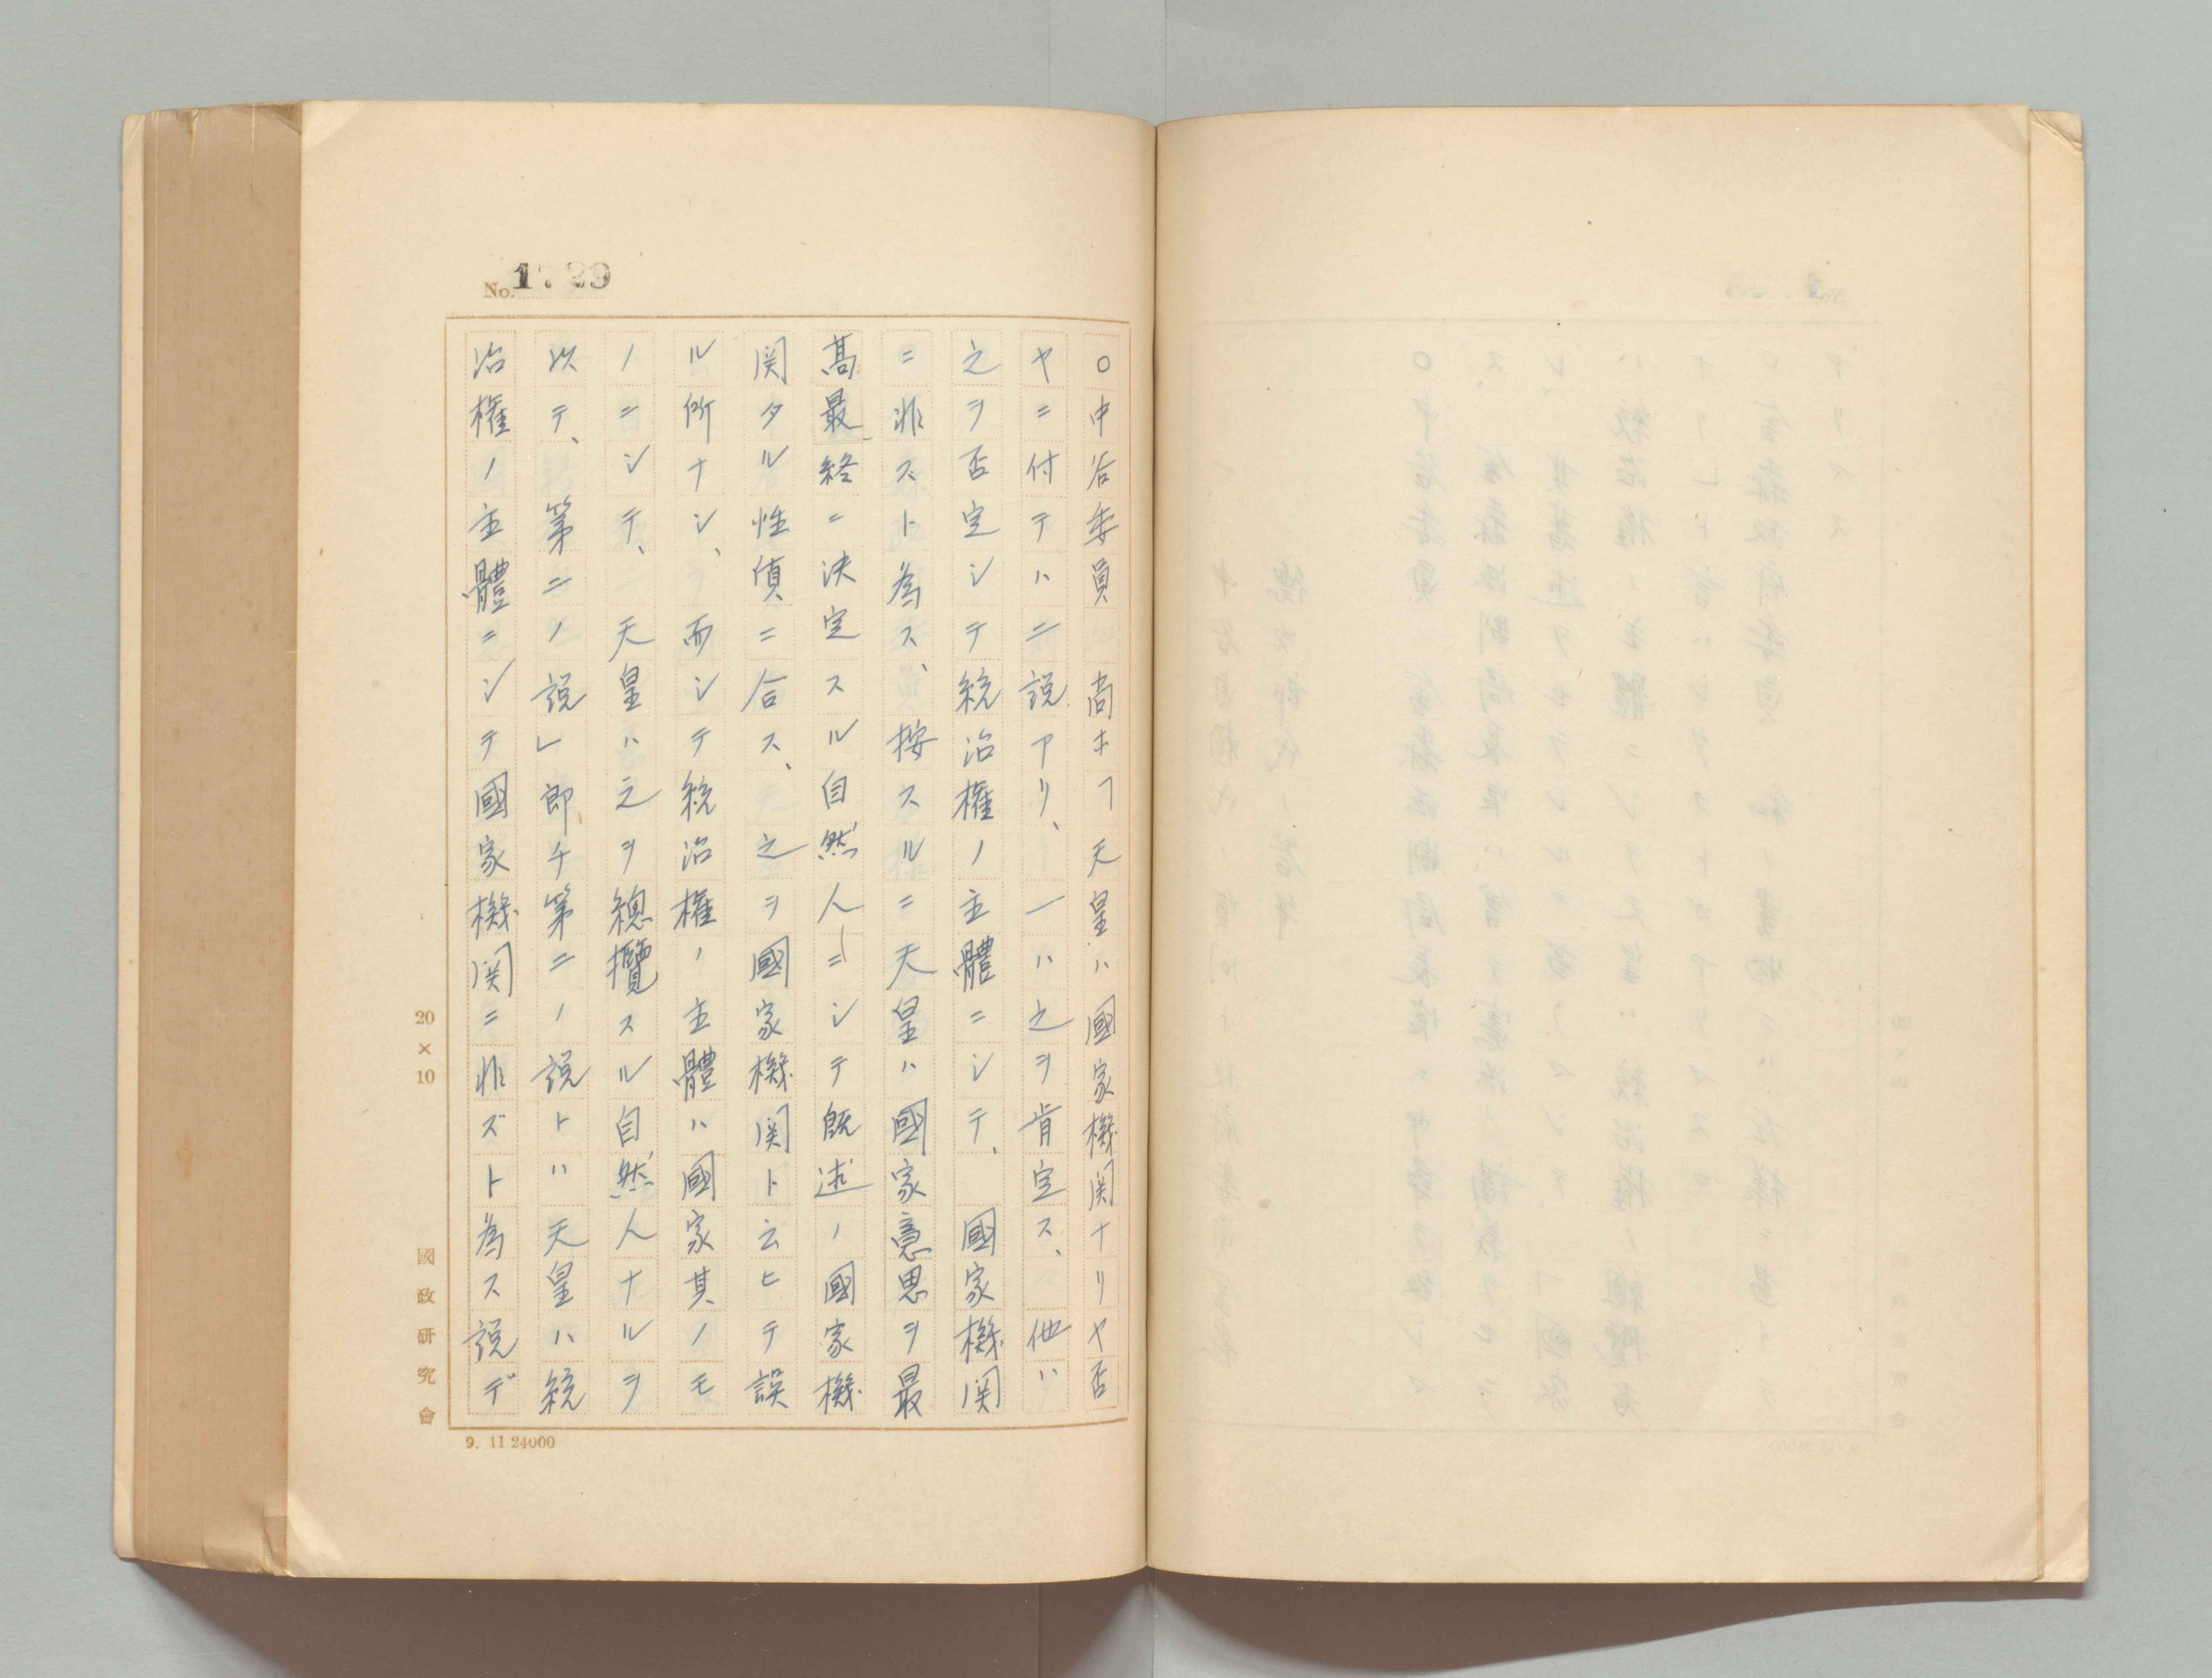 No. 1729
○中谷委員 尚ホ「天皇ハ國家機関ナリヤ否
ヤニ付テハ二説アリ、一ハ之ヲ肯定ス、他ハ
之ヲ否定シテ統治権ノ主體ニシテ、國家機関
ニ非ズト為ス、按スルニ天皇ハ國家意思ヲ最
高最終ニ決定スル自然人ニシテ既述ノ國家機
関タル性質ニ合ス、之ヲ國家機関ト云ヒテ誤
ル所ナシ、而シテ統治権ノ主體ハ國家其ノモ
ノニシテ、天皇ハ之ヲ總攬スル自然人ナルヲ
以テ、第二ノ説」即チ第二ノ説トハ天皇ハ統
治権ノ主體ニシテ國家機関ニ非ズト為ス説デ
20×10
國政研究會
9. 11 24000